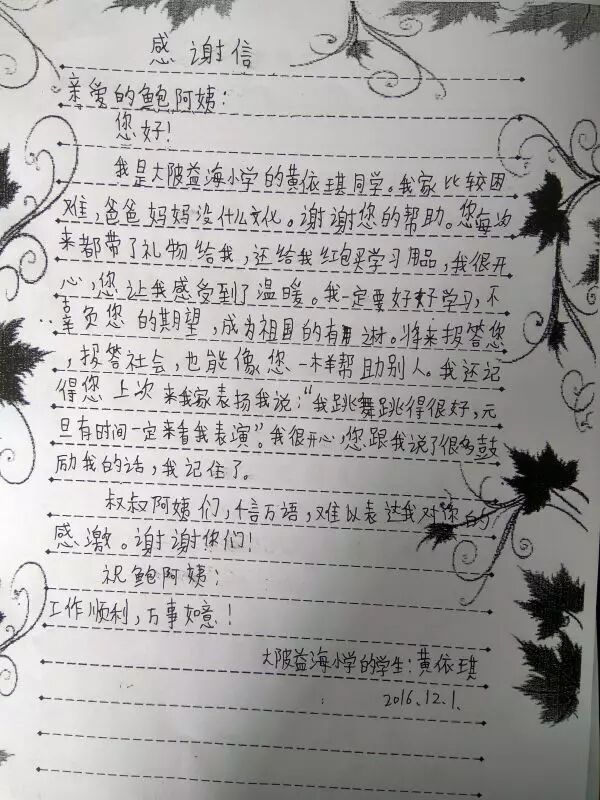 感谢信
亲爱的鲍阿姨：
您好！
我是大陂益海小学的黄依琪同学。我家比较困
难，爸爸妈妈没什么文化。谢谢您的帮助。您每次
来都带了礼物给我，还给我红包买学习用品，我很开
心，您让我感受到了温暖。我一定要好好学习，不
辜负您的期望，成为祖国的有用之材。将来报答您
，报答社会，也能像您一样帮助别人。我还记
得您上次来我家表扬我说：“我跳舞跳得很好，元
旦有时间一定来看我表演”。我很开心，您跟我说了很多鼓
励我的话，我记住了。
叔叔阿姨们，千言万语，难以表达我对您的
感激。谢谢你们！
祝鲍阿姨：
工作顺利，万事如意！
大陂益海小学的学生：黄依琪
2016.12.1.